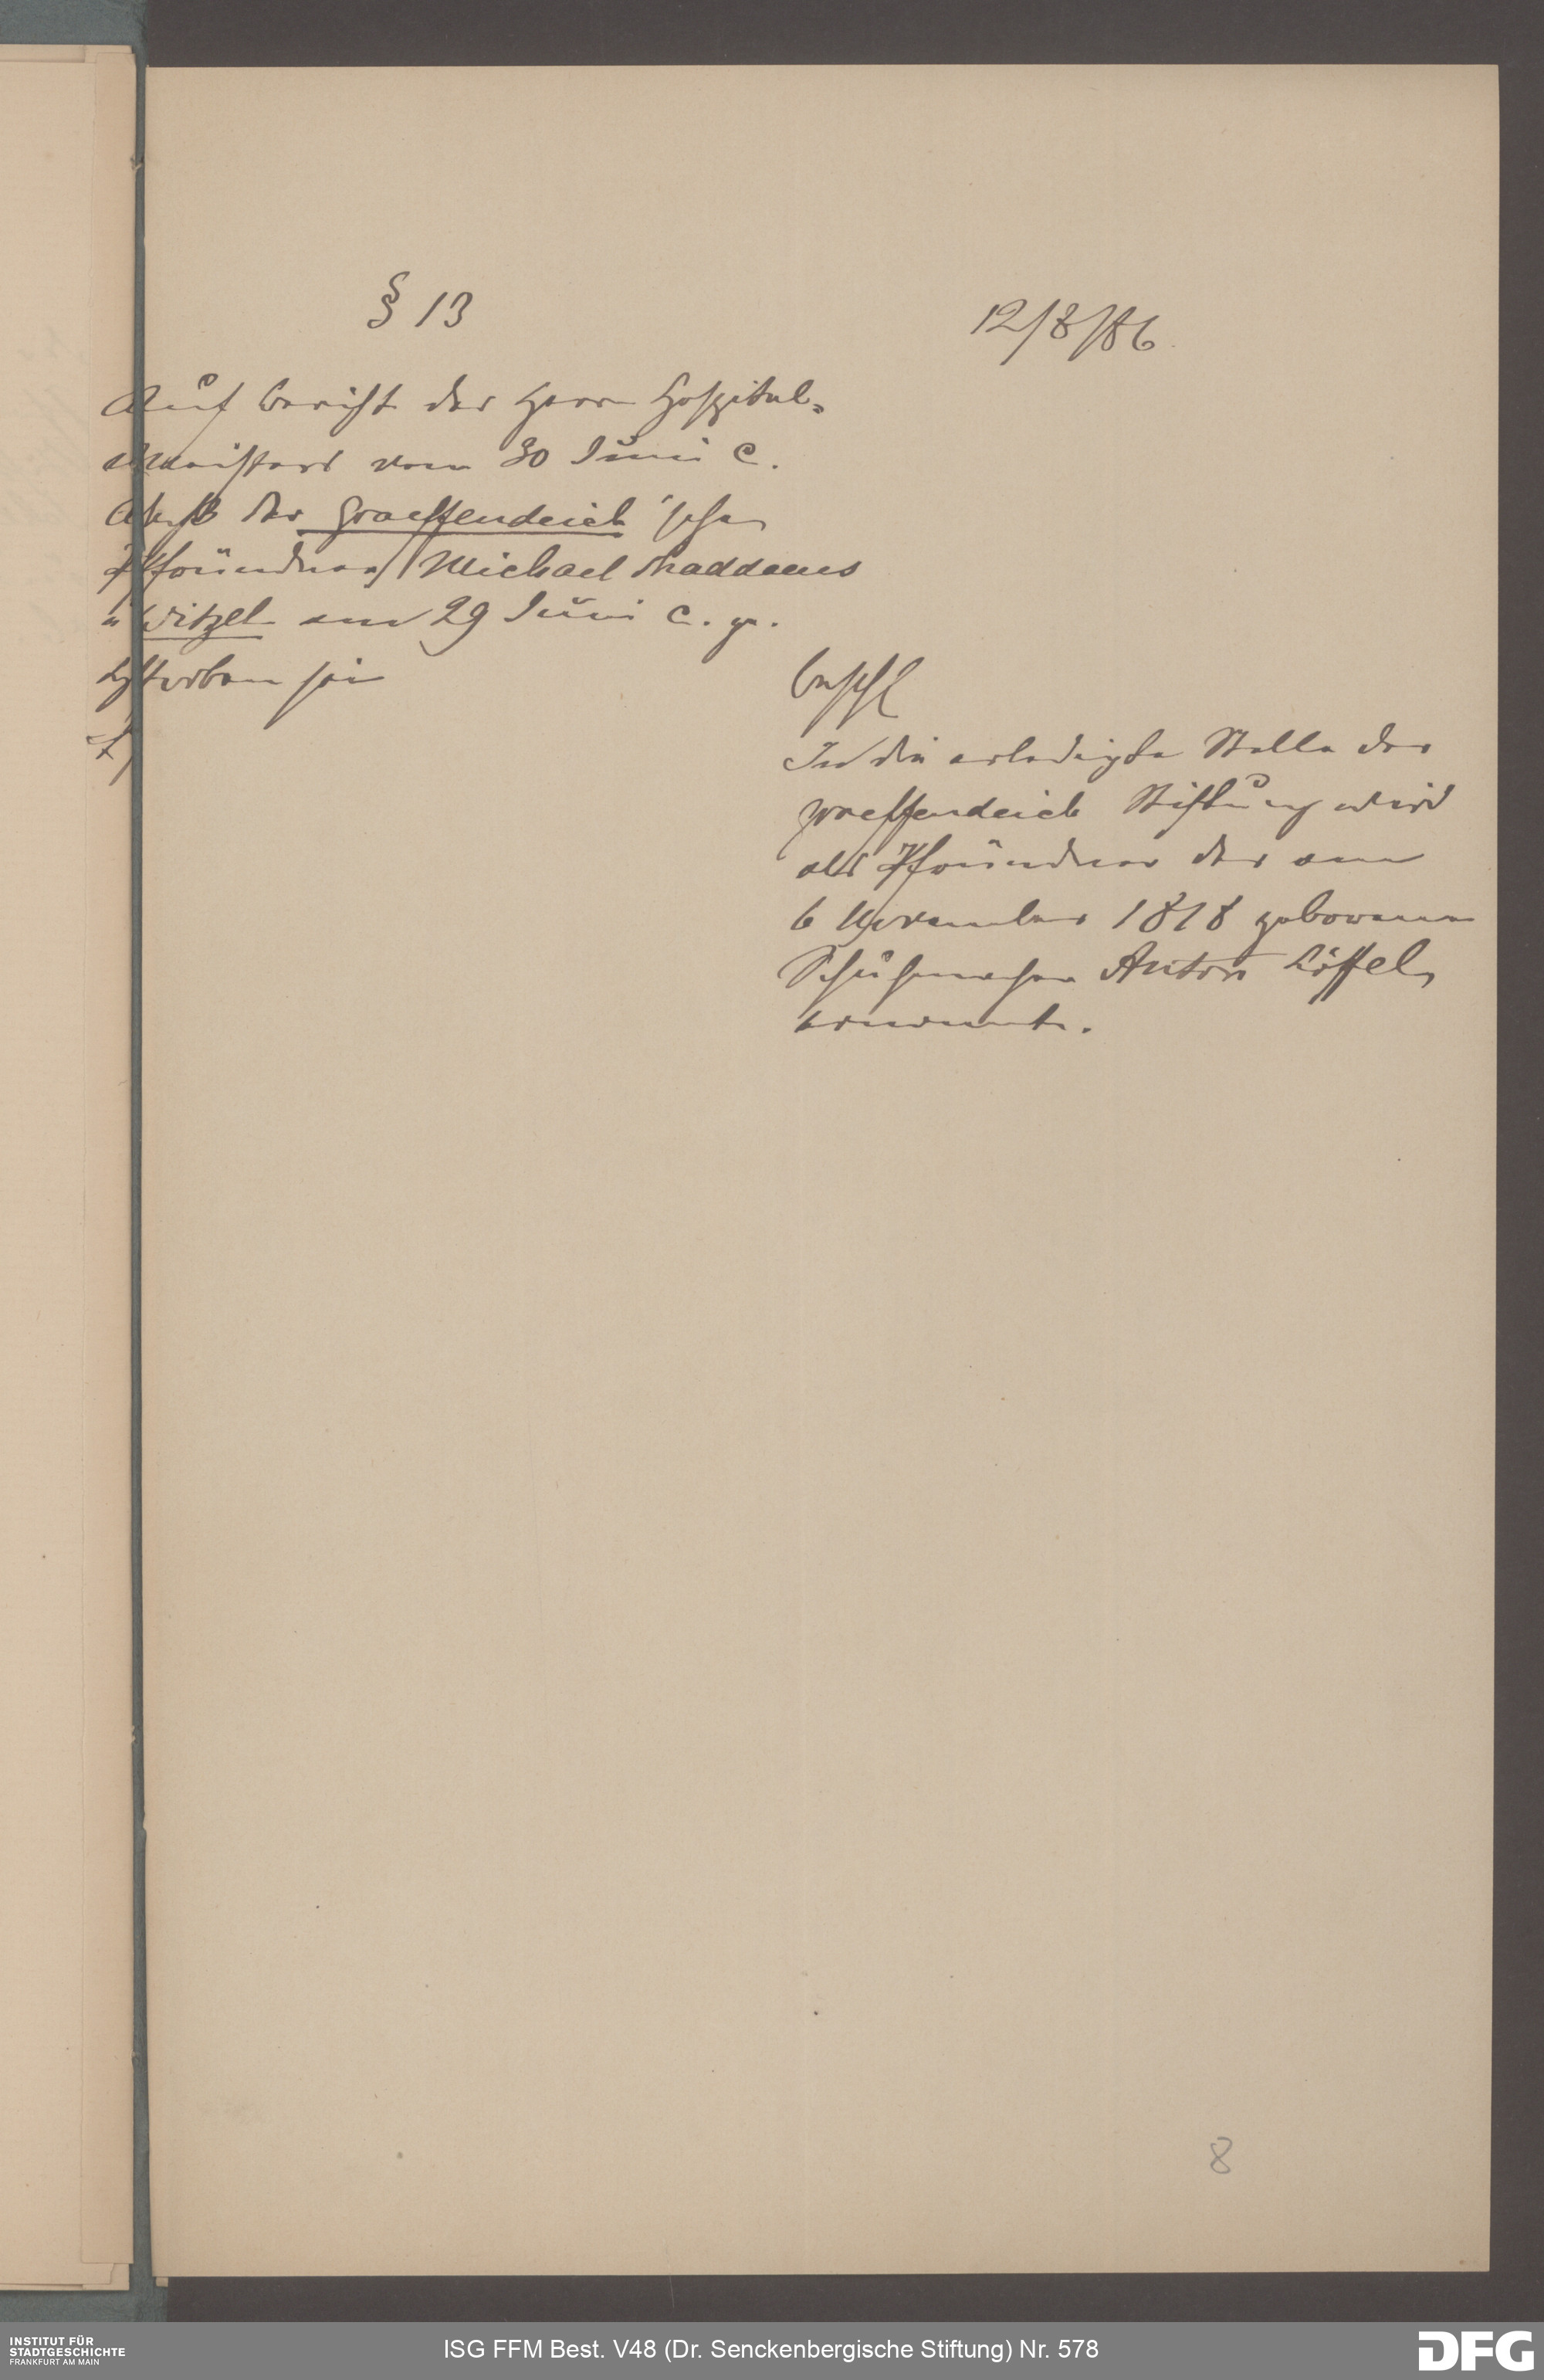 § 13
12/8/86.
Auf Bericht des Herrn Hospital-
Meisters vom 30 Juni c.
daß der Graeffendeich'sche
Pfründner Michael Thaddaeus
Witzel am 29 Juni c. g.
sei
Beschl
In die erledigte Stelle der
Graeffendeich Stiftung wird
als Pfründner der am
6 November 1818 geborene
Schuhmacher Anton Löffel,
ernannt.
8
INSTITUT FÜR
STADTGESCHICHTE
FRANKFURT AM MAIN
ISG FFM Best. V48 (Dr. Senckenbergische Stiftung) Nr. 578
DFG